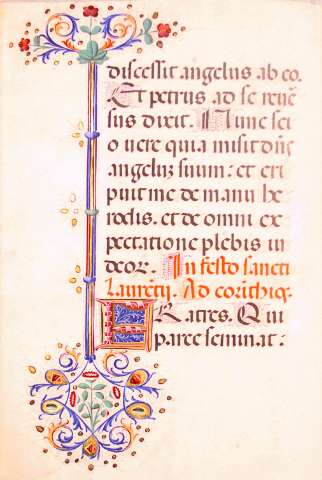 discessit angelus ab eo.
Et petrus ad se reuẽ
sus dixit. Nunc sci
o uere quia misit dñs
angelũ suum: et eri
puit me de manu he
rodis. et de omni ex
pectatione plebis iu
deor. In festo sancti
Laurẽtij. Ad corithios.
Fratres. Qui
parce seminat: